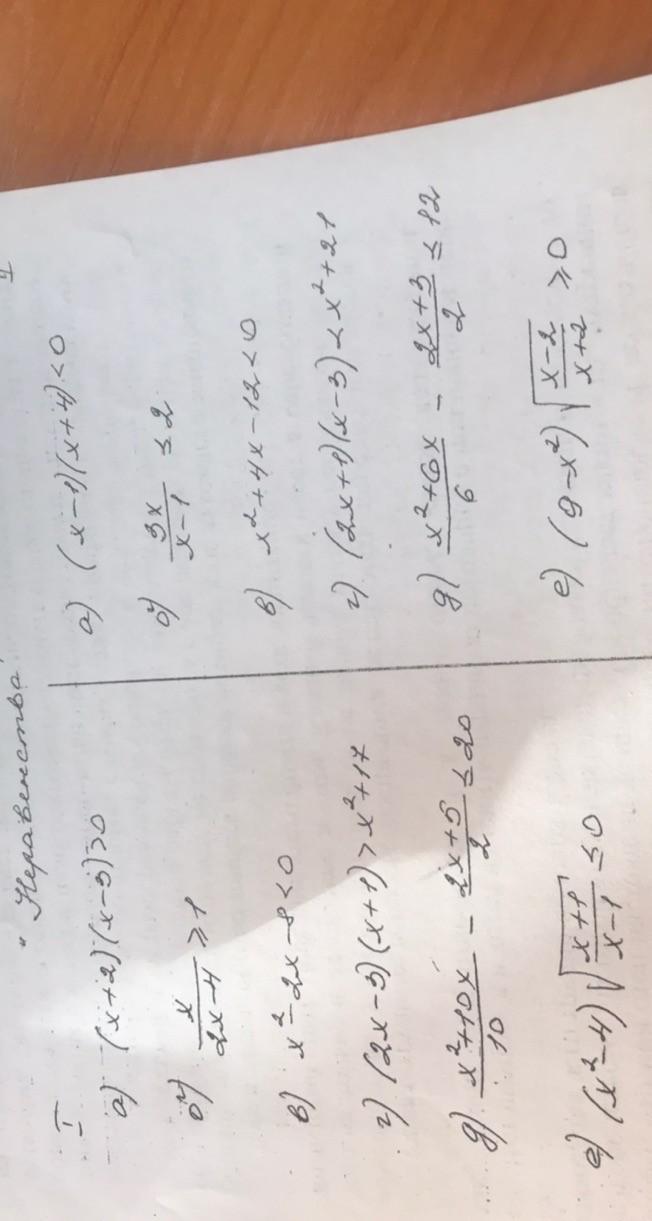 "Неравенства"
I
а) (x+2)(x-3)>0
б) x/(2x-4) ≥ 1
в) x²-2x-8<0
г) (2x-3)(x+1)>x²+17
д) (x²+10x)/10 - (2x+5)/2 ≤ 20
е) (x²-4)√((x+1)/(x-1)) ≤ 0
II
а) (x-1)(x+4)<0
б) 3x/(x-1) ≤ 2
в) x²+4x-12<0
г) (2x+1)(x-3)<x²+21
д) (x²+6x)/6 - (2x+3)/2 ≤ 12
е) (9-x²)√((x-2)/(x+2)) ≥ 0